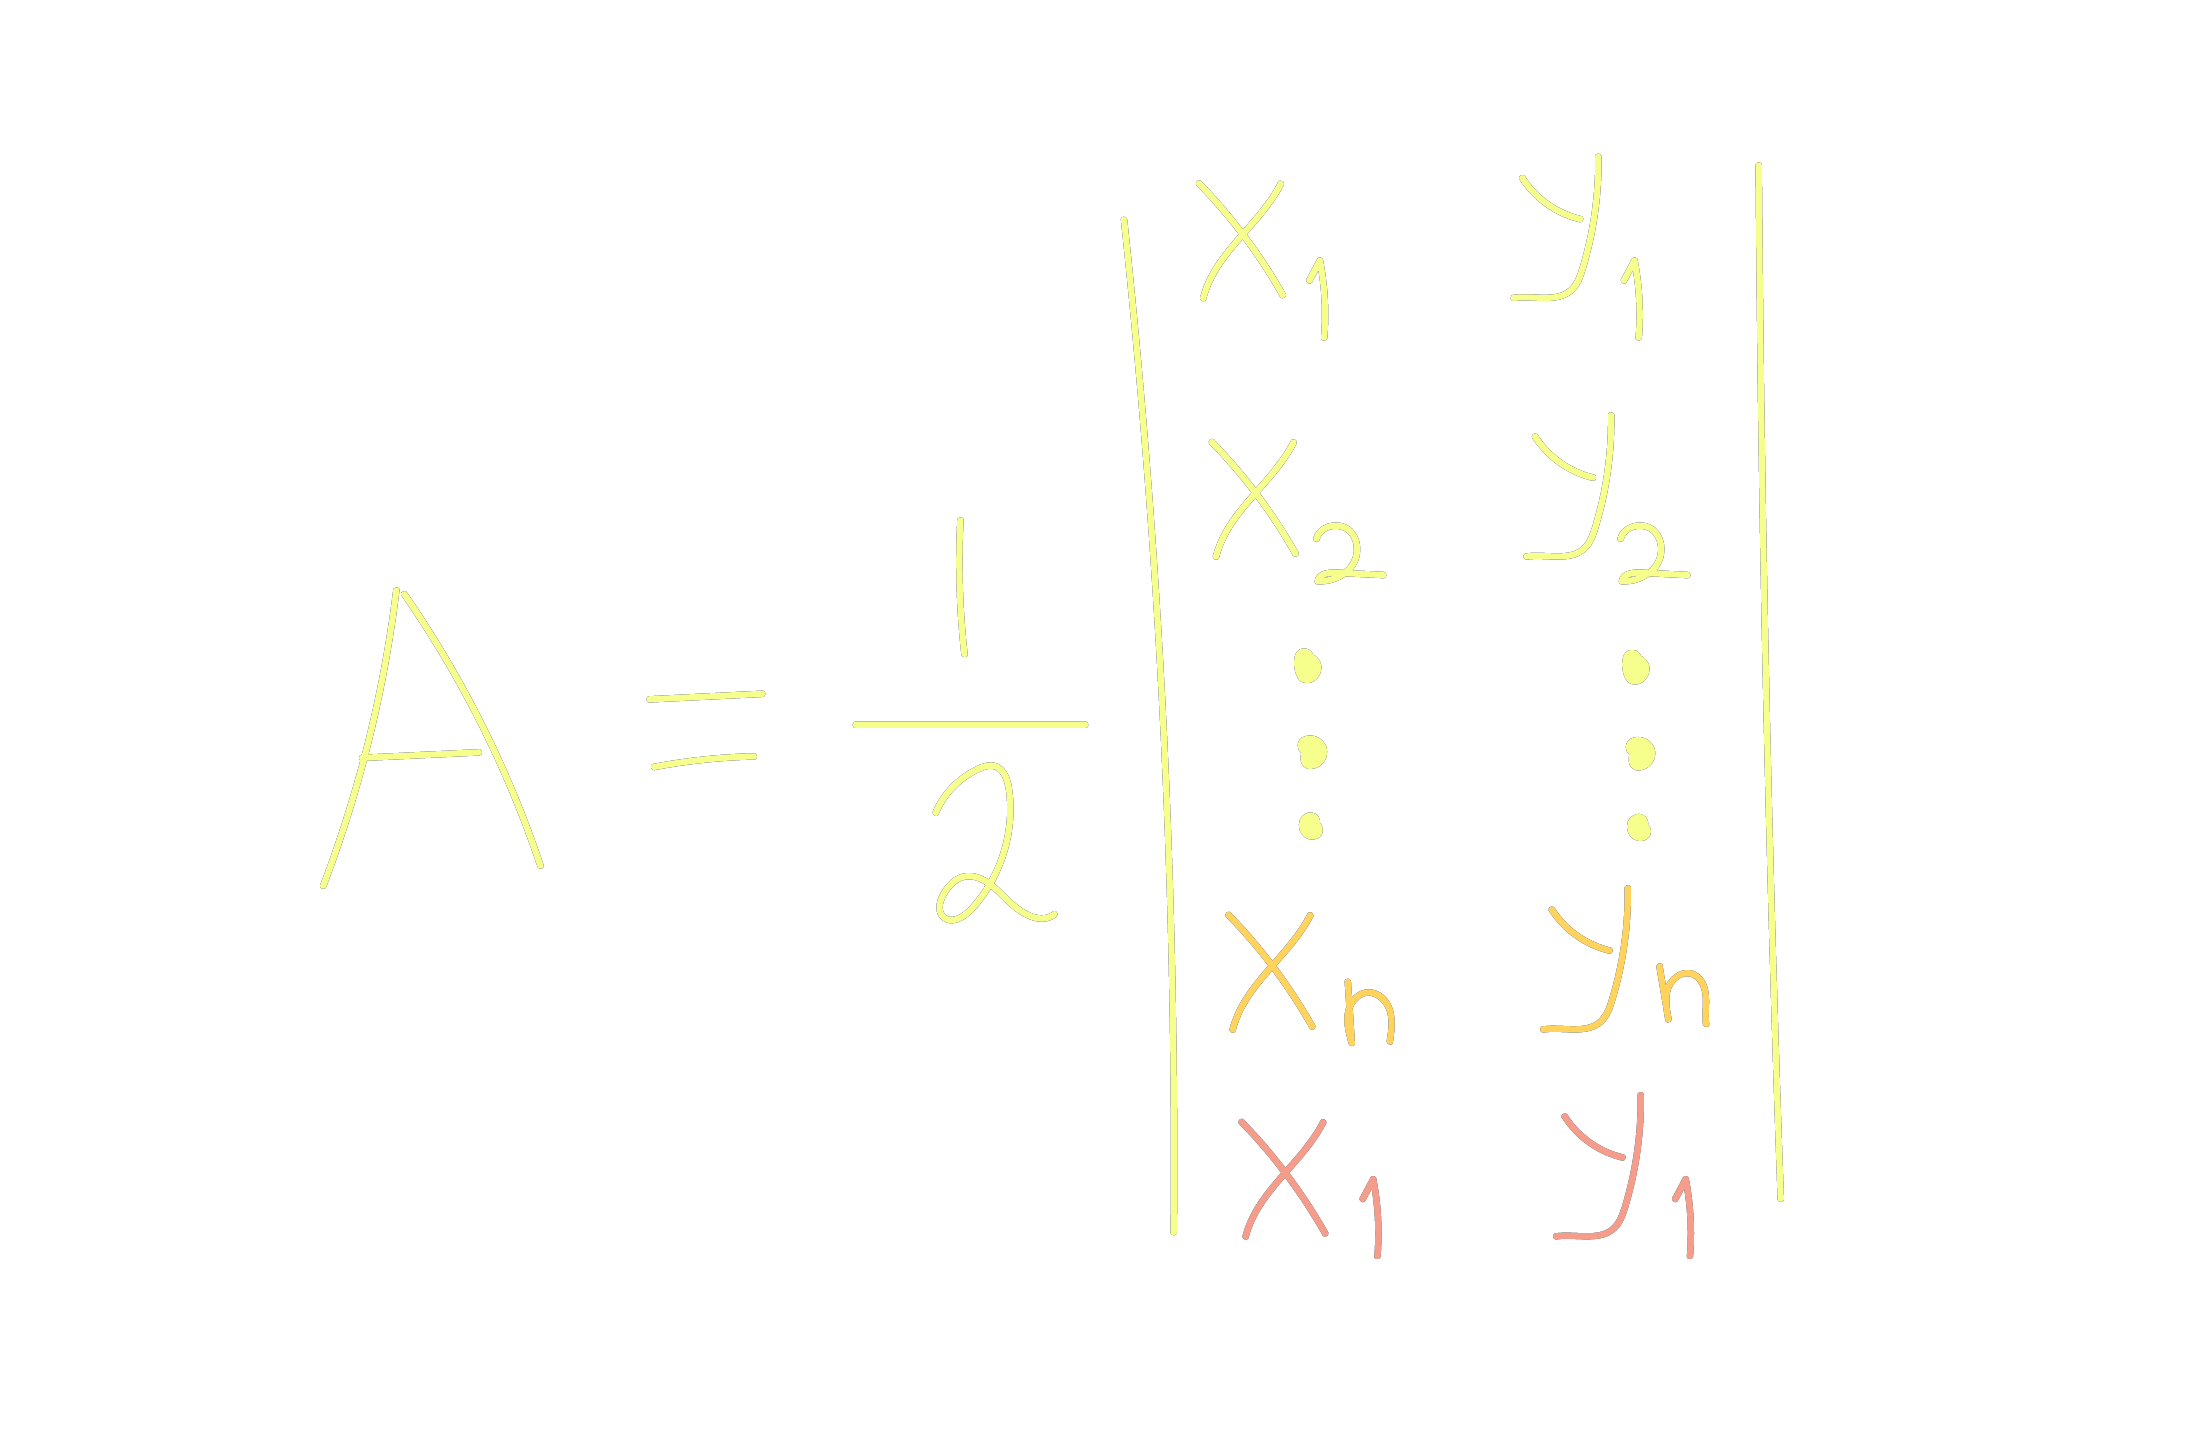 A = 1/2 | x₁ y₁ |
x₂ y₂
⋮ ⋮
xₙ yₙ
x₁ y₁